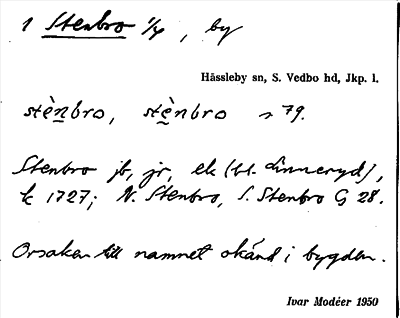 1 Stenbro 1/4, by
Hässleby sn, S. Vedbo hd, Jkp. l.
stèn̲bro, stèn̲bro s 79.
Stenbro jb, jr, ek (bl. Linneryd),
k 1727; N. Stenbro, S. Stenbro G 28.
Orsaken till namnet okänd i bygden.
Ivar Modéer 1950